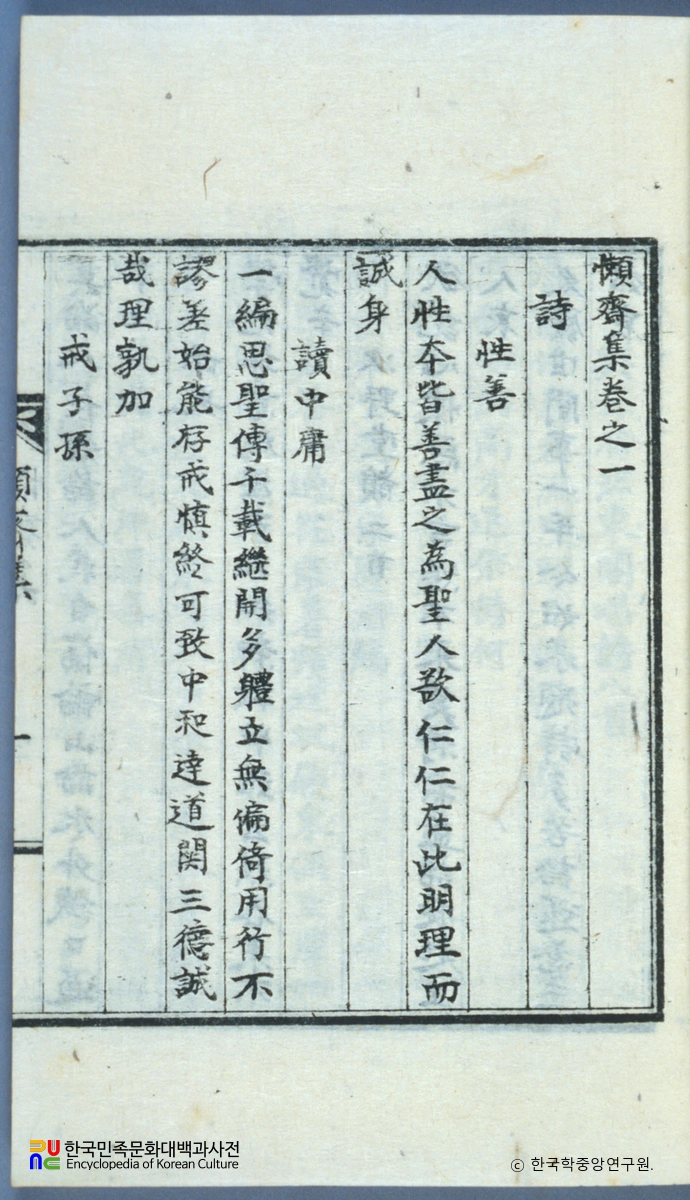 懶齋集卷之一
詩
性善
人性本皆善盡之為聖人欲仁仁在此明理而
誠身
讀中庸
一編思聖傳千載繼開多體立無偏倚用行不
謬差始能存戒愼終可致中和達道關三德誠
哉理孰加
戒子孫
懶齋集
一
한국민족문화대백과사전
Encyclopedia of Korean Culture
ⓒ 한국학중앙연구원.